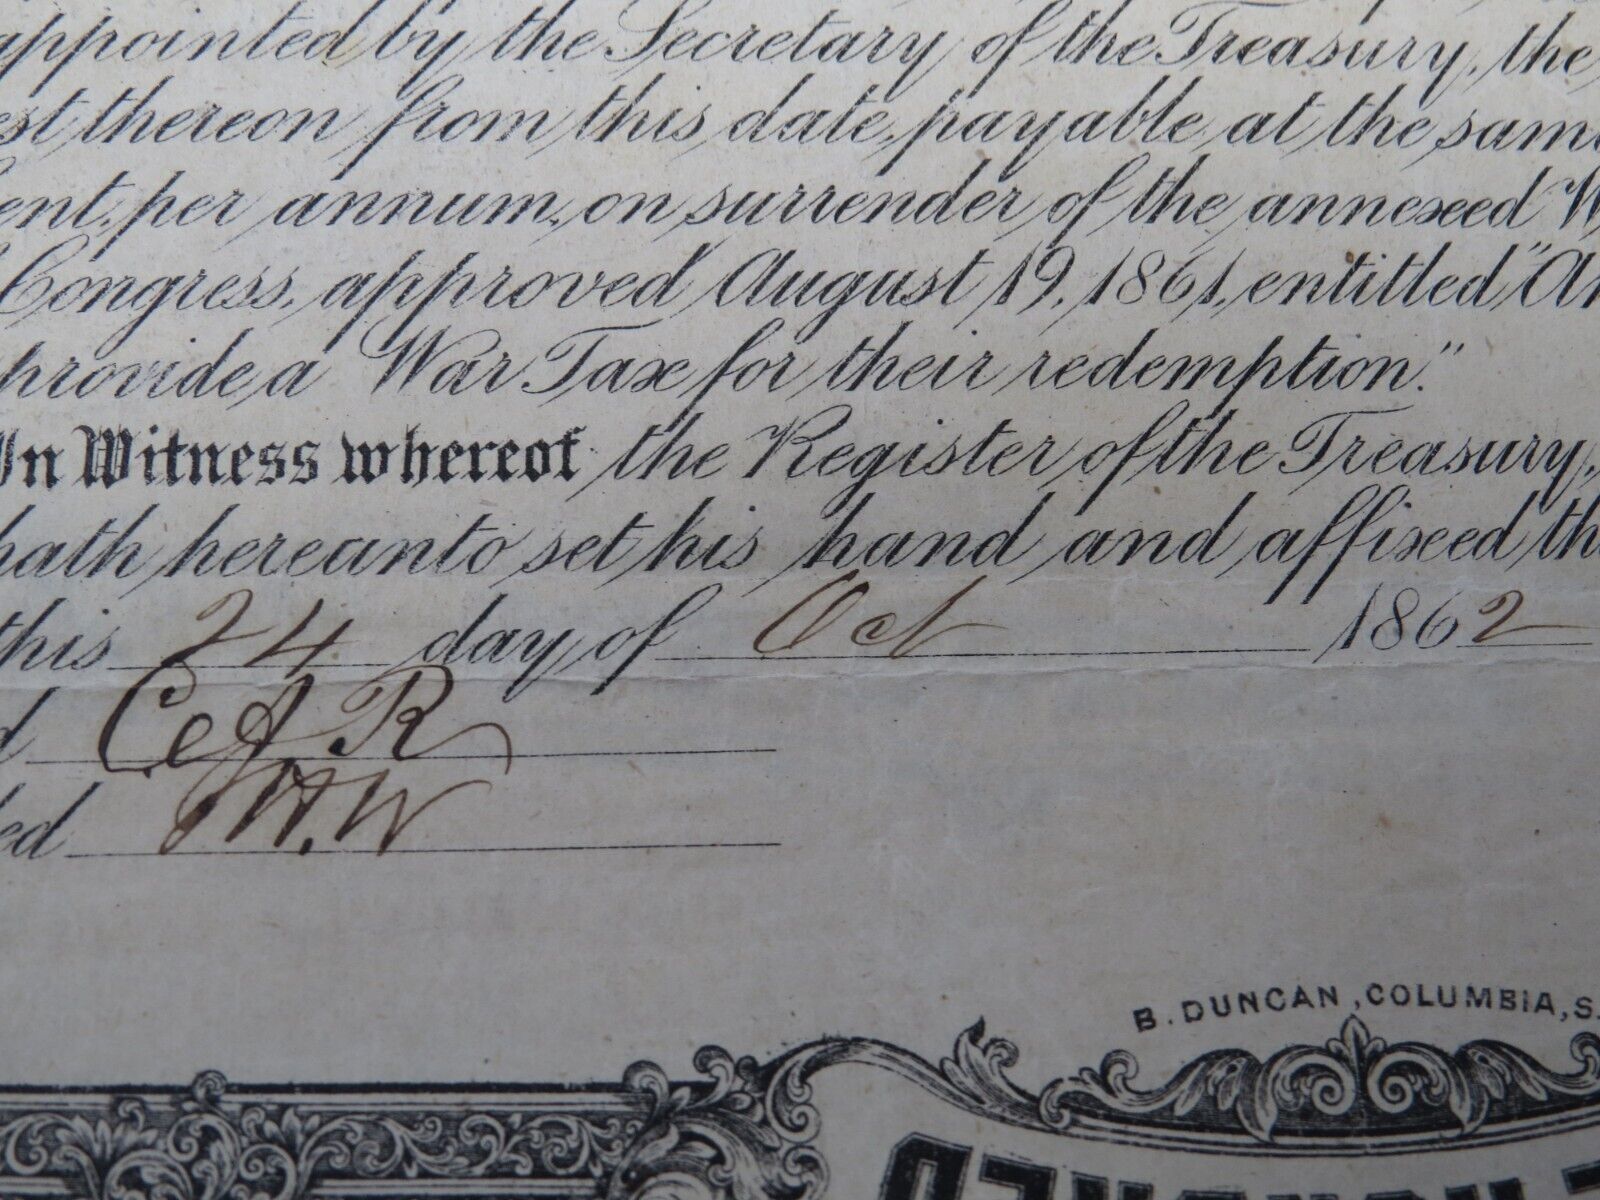 appointed by the Secretary of the Treasury, the
est thereon from this date, payable at the same
Cent. per annum, on surrender of the annexed W
Congress, approved August 19, 1861, entitled "An
provide a War Tax for their redemption."
In Witness whereof the Register of the Treasury,
hath hereunto set his hand and affixed the
this 24 day of Oct 1862
d C. A. R
ed W. W
B. DUNCAN, COLUMBIA, S.